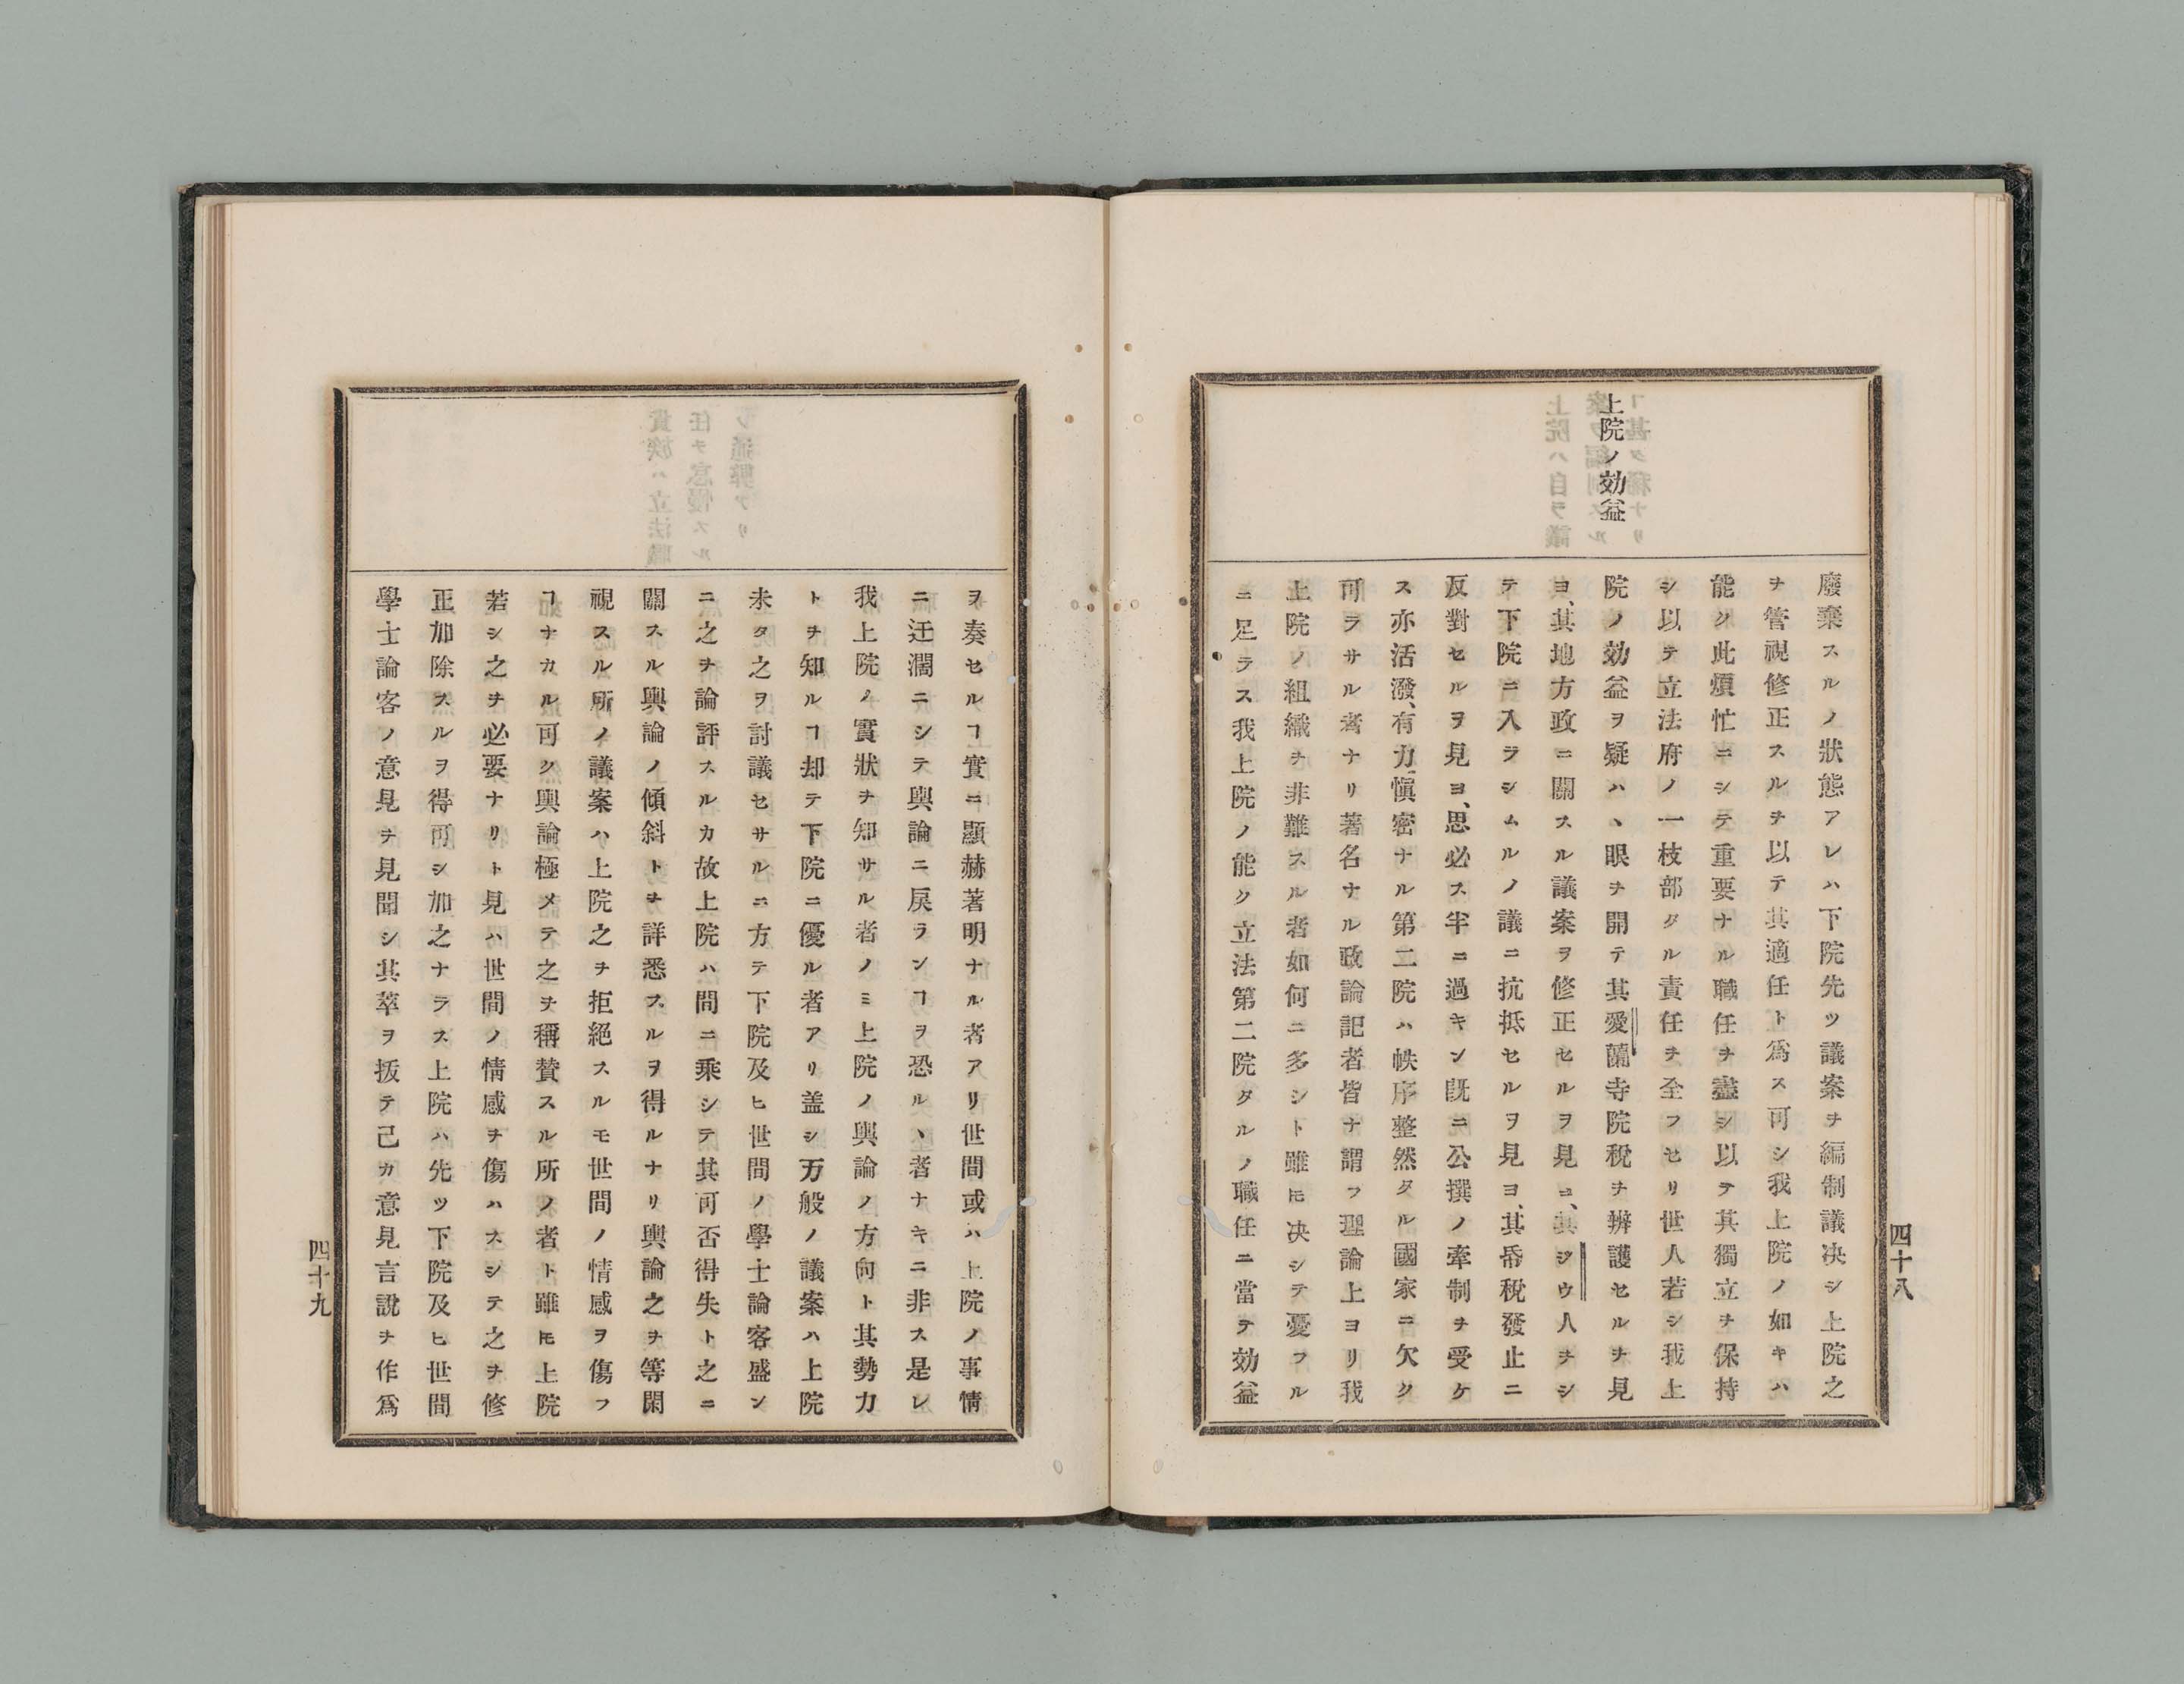 上院ノ効益
廢棄スルノ狀態アレハ下院先ツ議案ヲ編制議决シ上院之
ヲ管視修正スルヲ以テ其適任ト爲ス可シ我上院ノ如キハ
能ク此煩忙ニシテ重要ナル職任ヲ盡シ以テ其獨立ヲ保持
シ以テ立法府ノ一枝部タル責任ヲ全フセリ世人若シ我上
院ノ効益ヲ疑ハヽ眼ヲ開テ其愛蘭寺院稅ヲ辨護セルヲ見
ヨ、其地方政ニ關スル議案ヲ修正セルヲ見ヨ、其ジウ人ヲシ
テ下院ニ入ラシムルノ議ニ抗抵セルヲ見ヨ、其帋稅發止ニ
反對セルヲ見ヨ、思必ス半ニ過キン旣ニ公撰ノ牽制ヲ受ケ
ス亦活潑、有力、愼密ナル第二院ハ帙序整然タル國家ニ欠ク
可ラサル者ナリ著名ナル政論記者皆ナ謂フ理論上ヨリ我
上院ノ組織ヲ非難スル者如何ニ多シト雖𪜈决シテ憂フル
ニ足ラス我上院ノ能ク立法第二院タルノ職任ニ當テ効益
四十八
ヲ奏セルヿ實ニ顯赫著明ナル者アリ世間或ハ上院ノ事情
ニ迂濶ニシテ輿論ニ戾ランヿヲ恐ルヽ者ナキニ非ス是レ
我上院ノ實狀ヲ知サル者ノミ上院ノ輿論ノ方向ト其勢力
トヲ知ルヿ却テ下院ニ優ル者アリ盖シ万般ノ議案ハ上院
未タ之ヲ討議セサルニ方テ下院及ヒ世間ノ學士論客盛ン
ニ之ヲ論評スルカ故上院ハ間ニ乘シテ其可否得失ト之ニ
關スル輿論ノ傾斜トヲ詳悉スルヲ得ルナリ輿論之ヲ等閑
視スル所ノ議案ハ上院之ヲ拒絕スルモ世間ノ情感ヲ傷フ
ヿナカル可ク輿論極メテ之ヲ稱賛スル所ノ者ト雖𪜈上院
若シ之ヲ必要ナリト見ハ世間ノ情感ヲ傷ハスシテ之ヲ修
正加除スルヲ得可シ加之ナラス上院ハ先ツ下院及ヒ世間
學士論客ノ意見ヲ見聞シ其萃ヲ抜テ己カ意見言說ヲ作爲
四十九